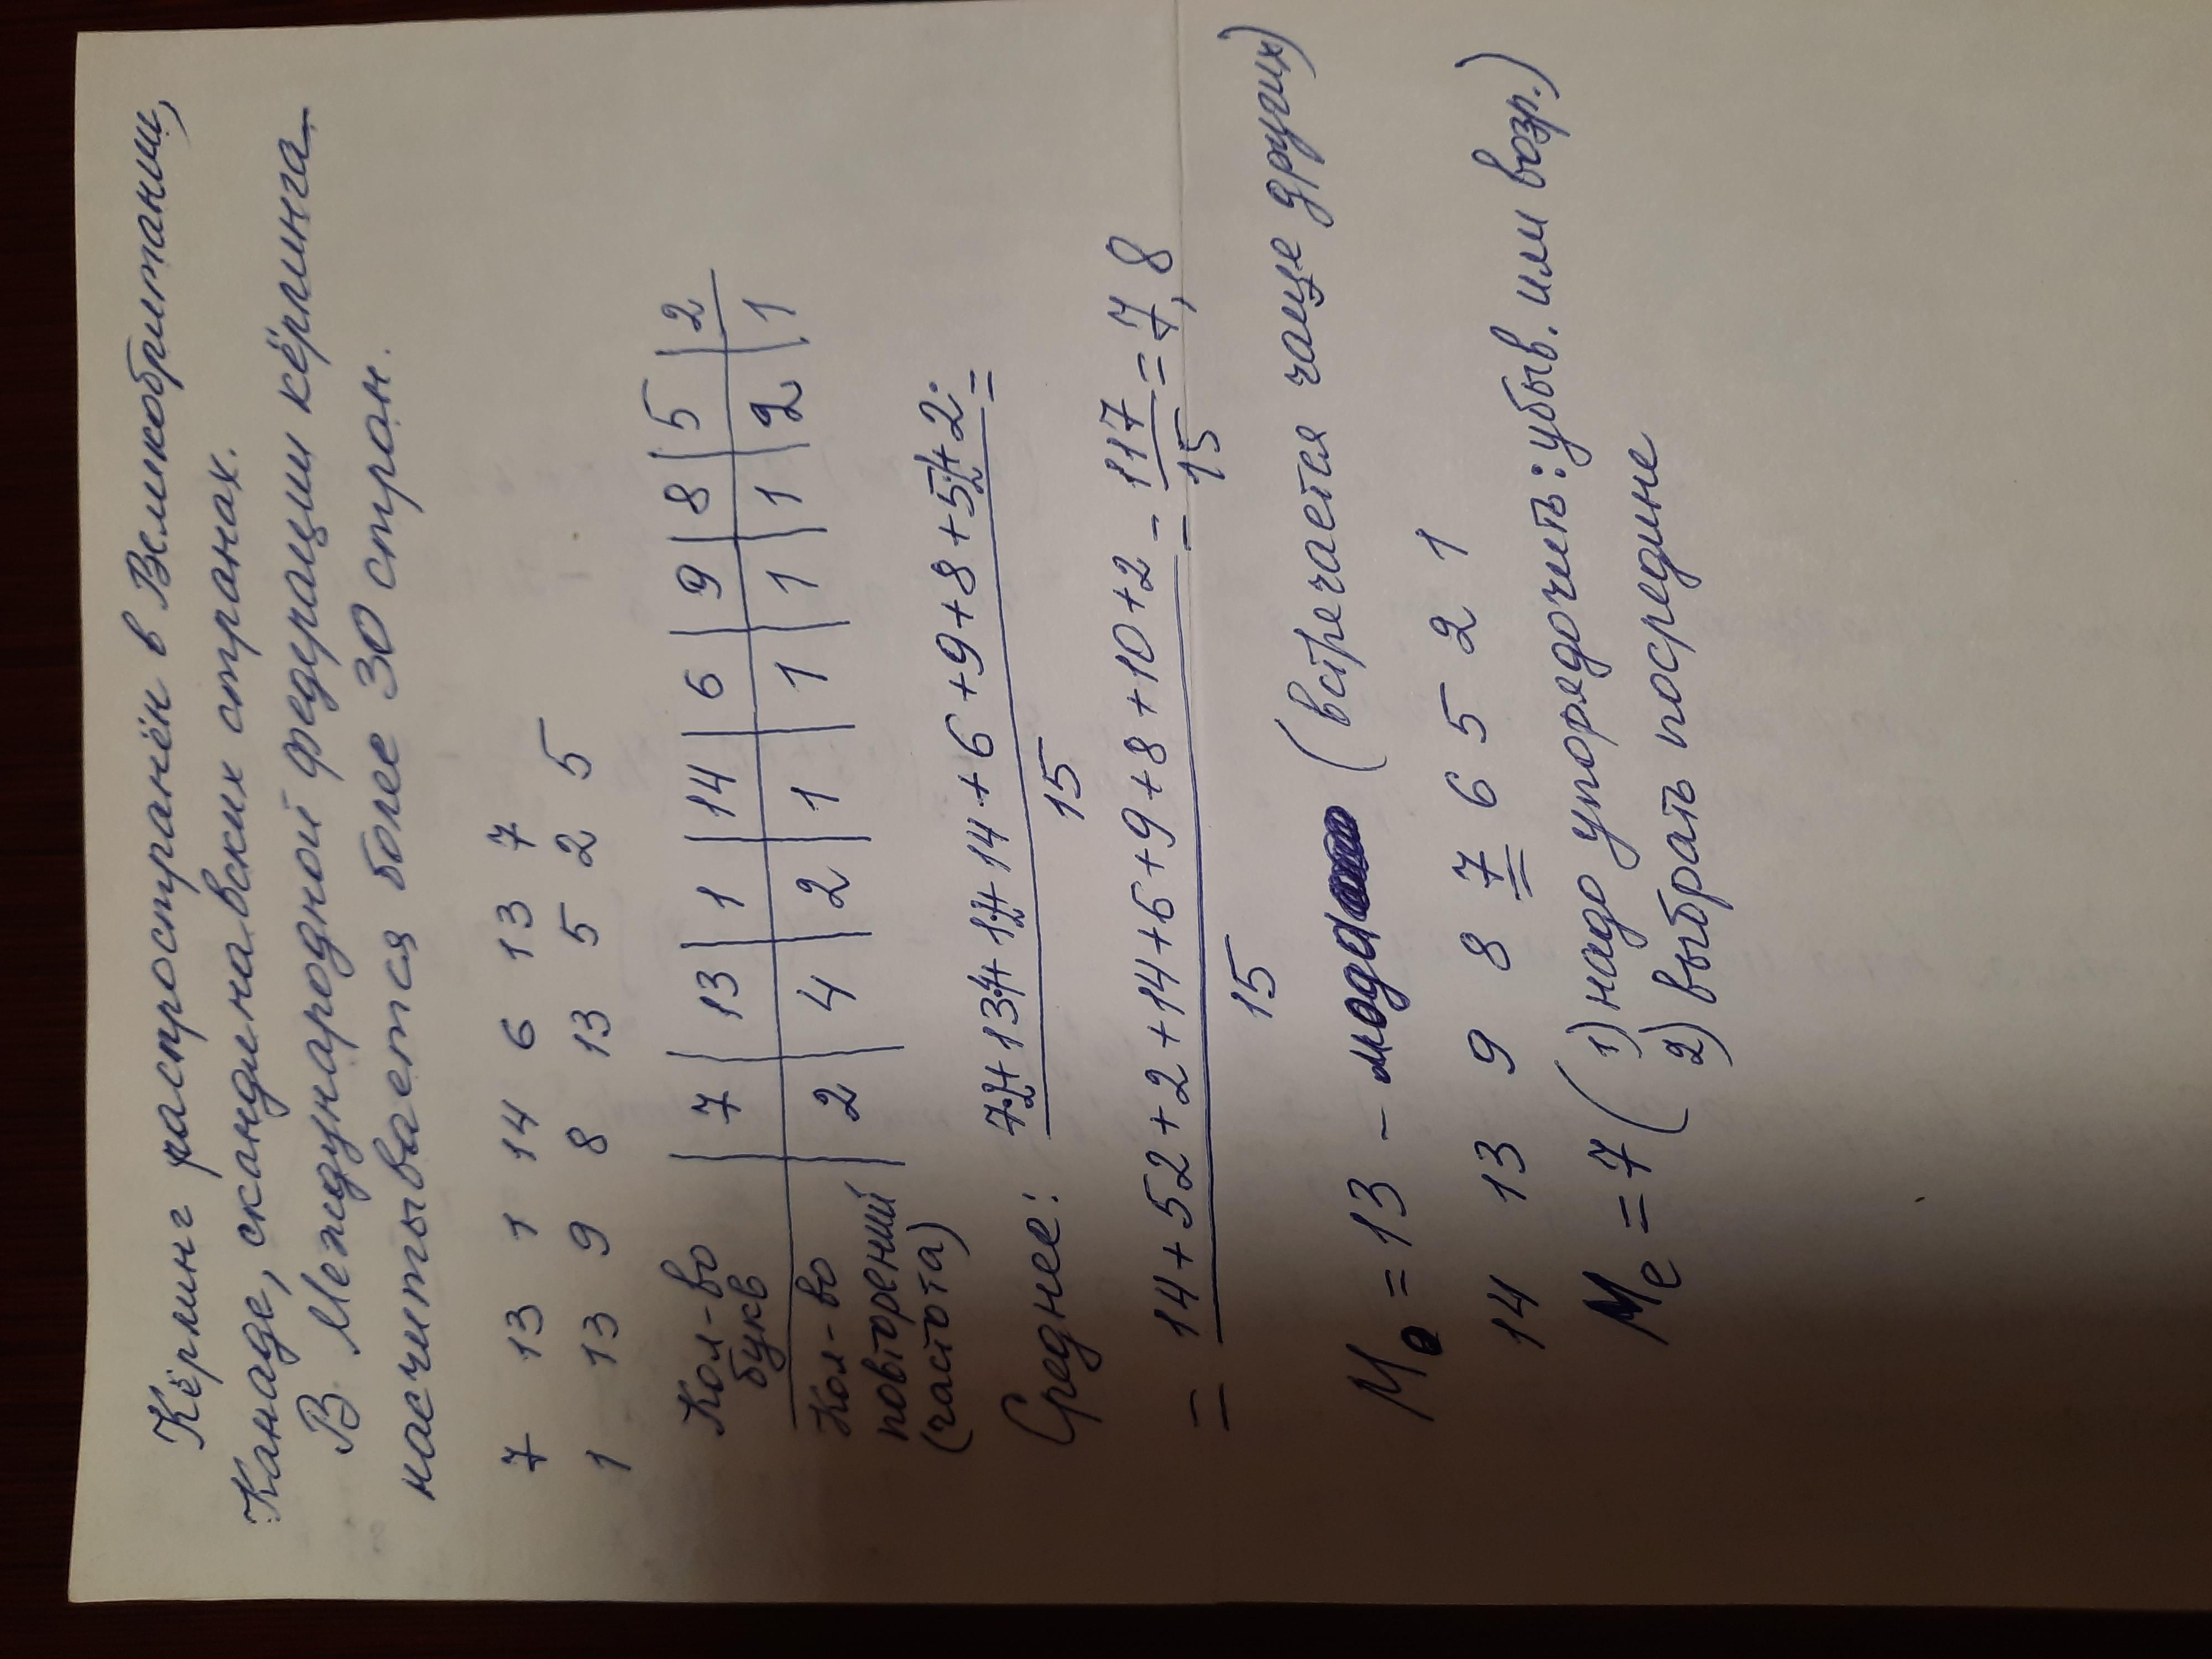 Кёрлинг распространён в Великобритании,
Канаде, скандинавских странах.
В Международной федерации кёрлинга
насчитывается более 30 стран.
7 13 1 14 6 13 7
1 13 9 8 13 5 2 5
Кол-во букв | 7 | 13 | 1 | 14 | 6 | 9 | 8 | 5 | 2
Кол-во повторений (частота) | 2 | 4 | 2 | 1 | 1 | 1 | 1 | 2 | 1
Среднее: 7·2+13·4+1·2+14+6+9+8+5·2+2 =
15
= 14+52+2+14+6+9+8+10+2 = 117 = 7,8
15 15
Mo = 13 - мода (встречается чаще других)
14 13 9 8 7 6 5 2 1
Me = 7 (1) надо упорядочить: убыв. или возр.)
2) выбрать посредине